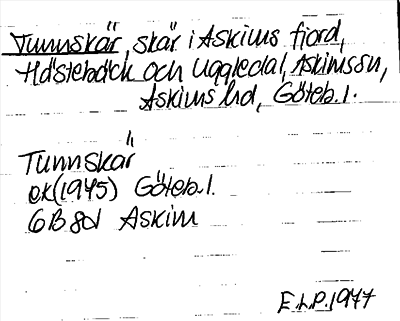 Tunnskär, skär i Askims fjord,
Hästebäck och Uggledal, Askims sn,
Askims hd, Göteb. l.
Tunnskär
ek (1945) Göteb. l.
6B 8d Askim
E.L.P. 1977